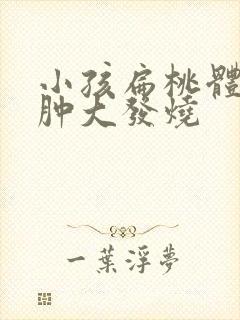 小孩扁桃體
肿大發燒
一葉浮夢